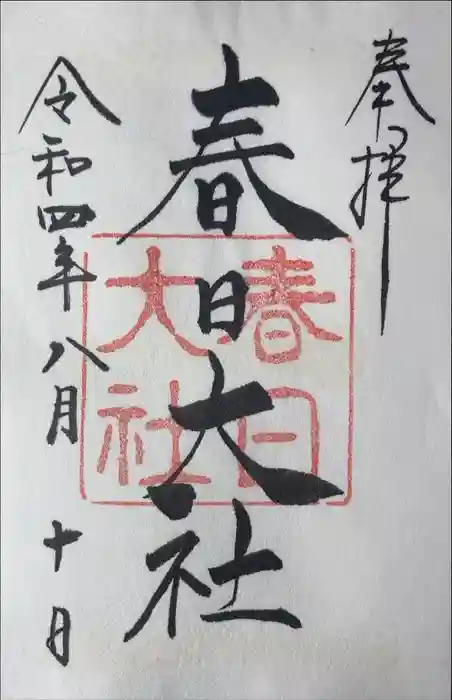 奉拝
春日大社
春日
大社
令和四年八月十日